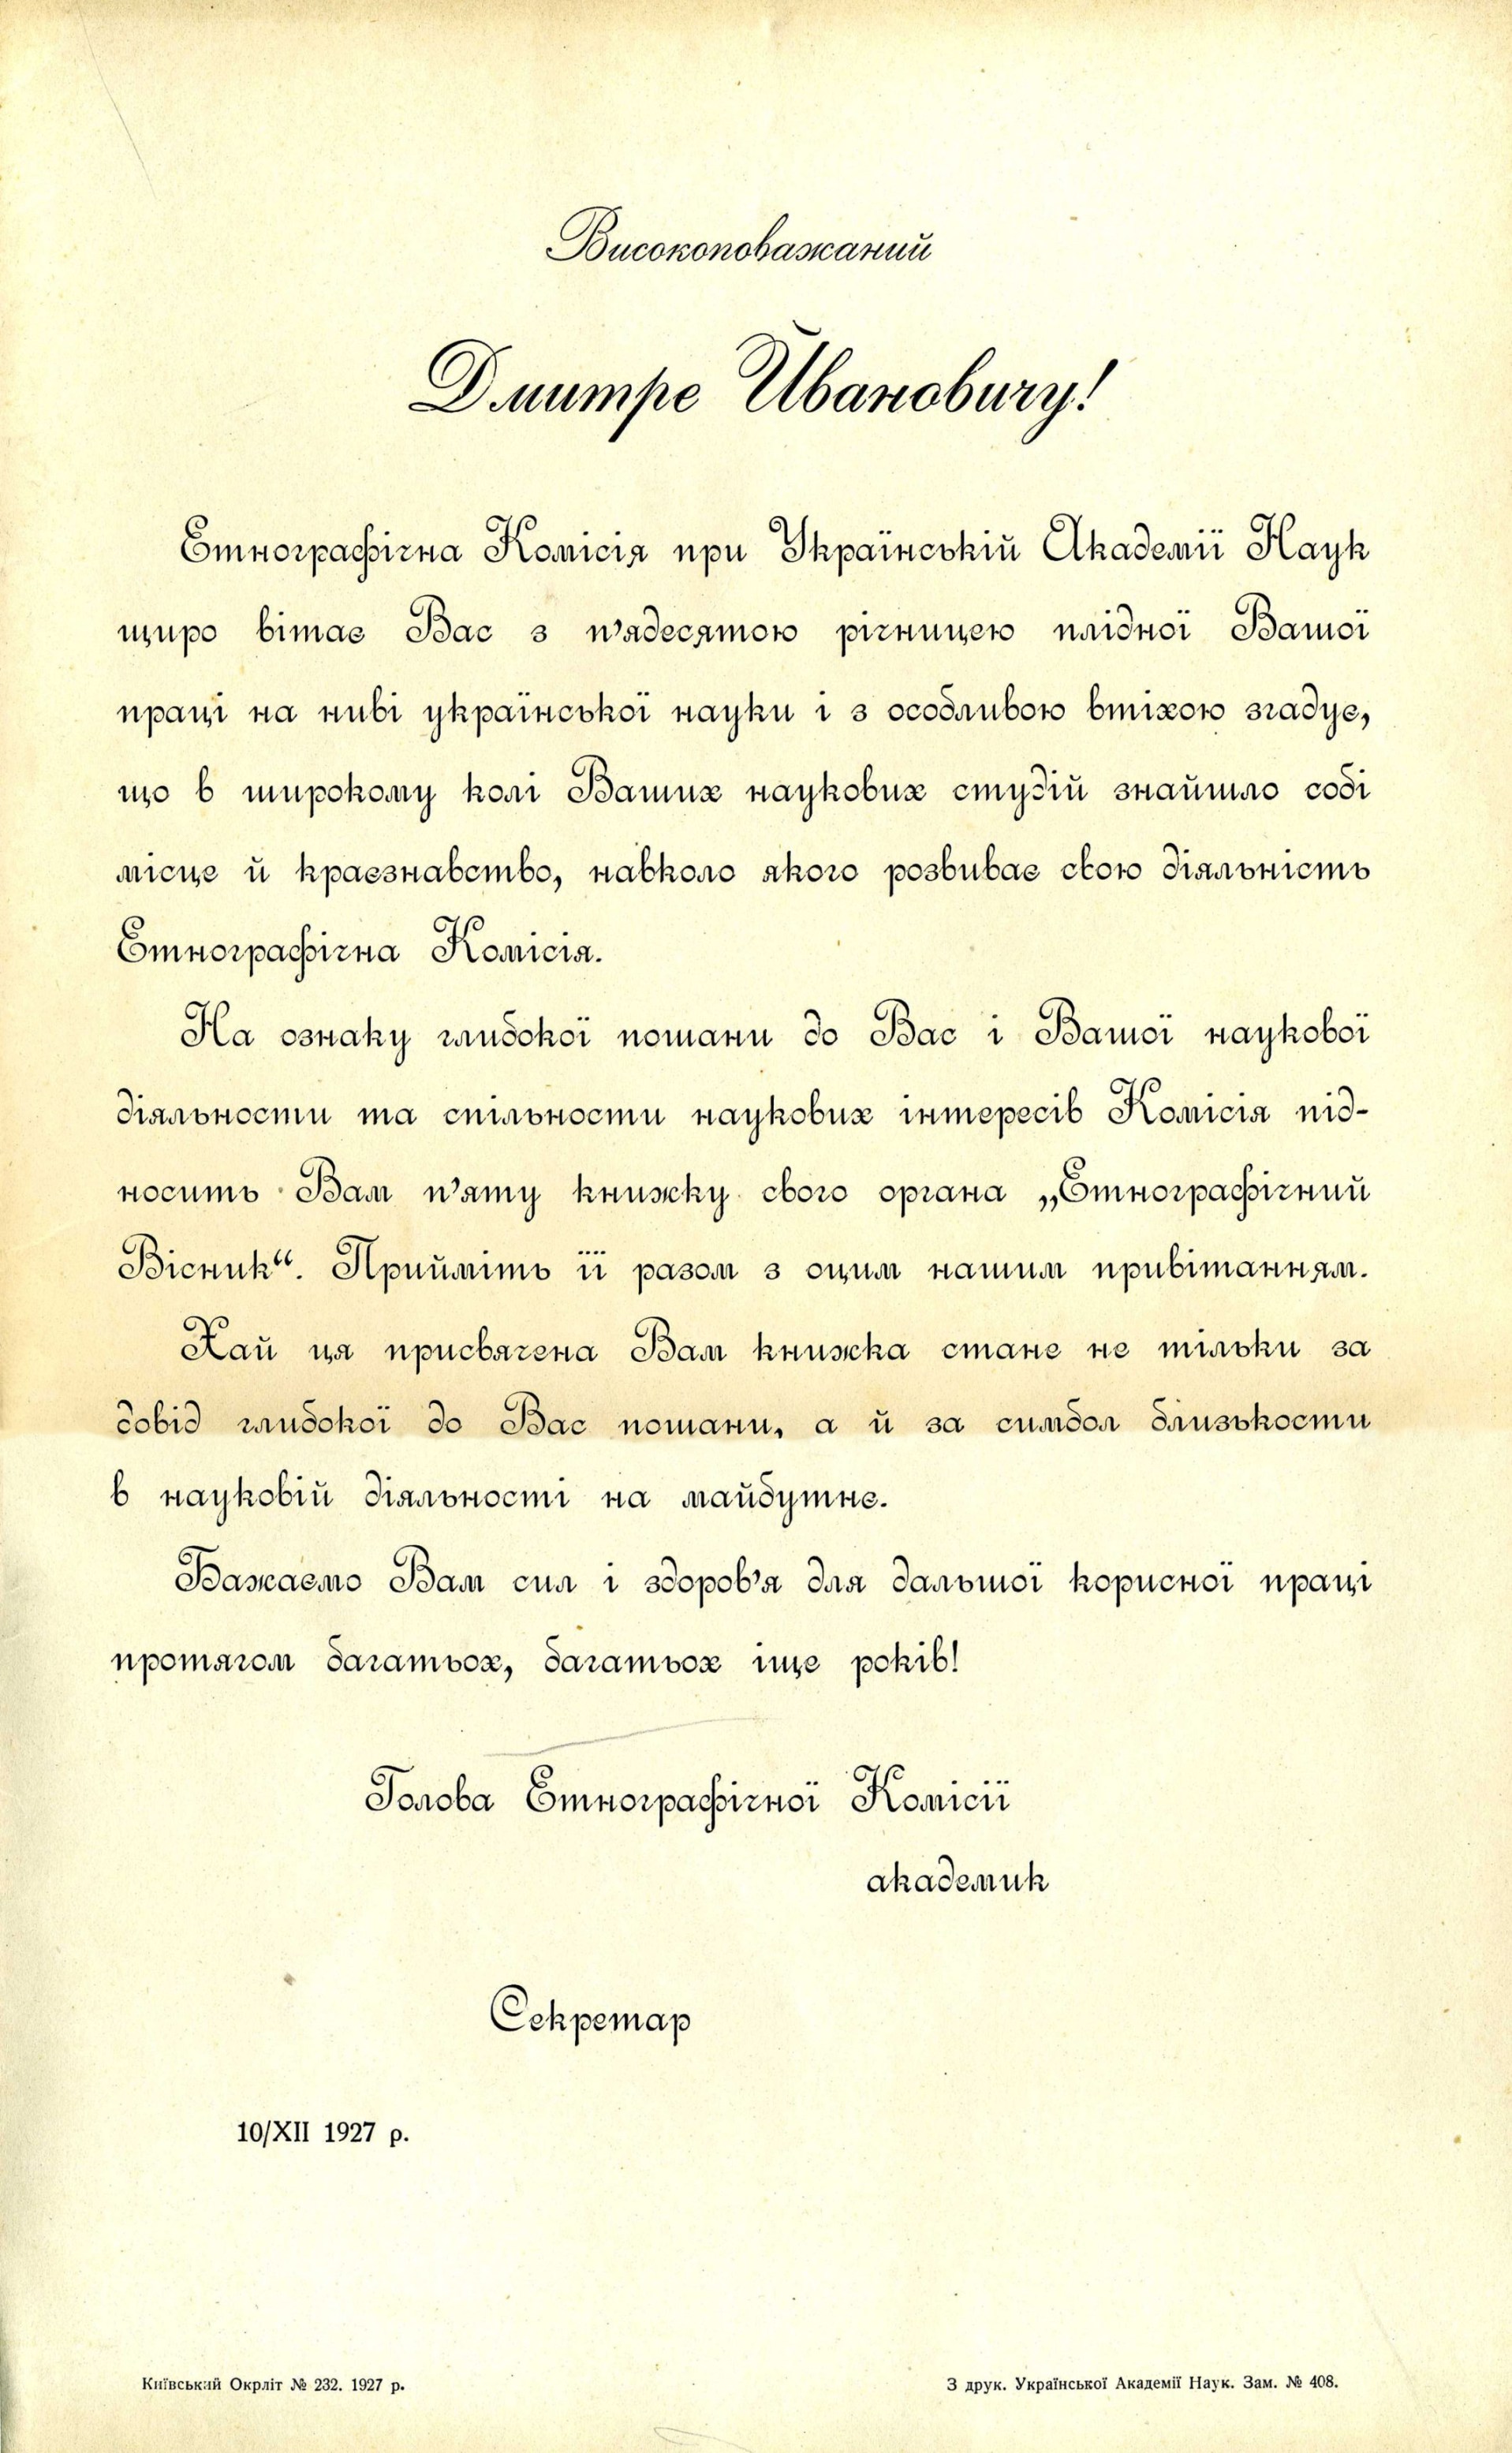 Високоповажаний
Дмитре Ивановичу!
Етнографічна Комісія при Українській Академії Наук
щиро вітає Вас з п'ядесятою річницею плідної Вашої
праці на ниві української науки і з особливою втіхою згадує,
що в широкому колі Ваших наукових студій знайшло собі
місце й краєзнавство, навколо якого розвиває свою діяльність
Етнографічна Комісія.
На ознаку глибокої пошани до Вас і Вашої наукової
діяльности та спільности наукових інтересів Комісія під-
носить Вам п'яту книжку свого органа „Етнографічний
Вісник“. Прийміть її разом з оцим нашим привітанням.
Хай ця присвячена Вам книжка стане не тільки за
довід глибокої до Вас пошани, а й за символ близькости
в науковій діяльності на майбутнє.
Бажаємо Вам сил і здоров'я для дальшої корисної праці
протягом багатьох, багатьох іще років!
Голова Етнографічної Комісії
академик
Секретар
10/XII 1927 р.
Київський Окрліт № 232. 1927 р.
З друк. Української Академії Наук. Зам. № 408.